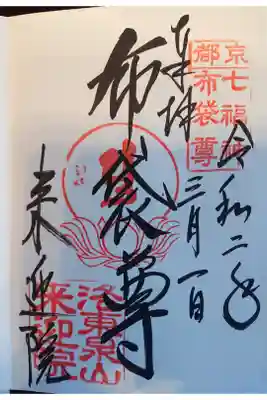 京七福神
都布袋尊
令和二年三月一日
奉拝
布袋尊
来迎院
洛東泉山
來迎院